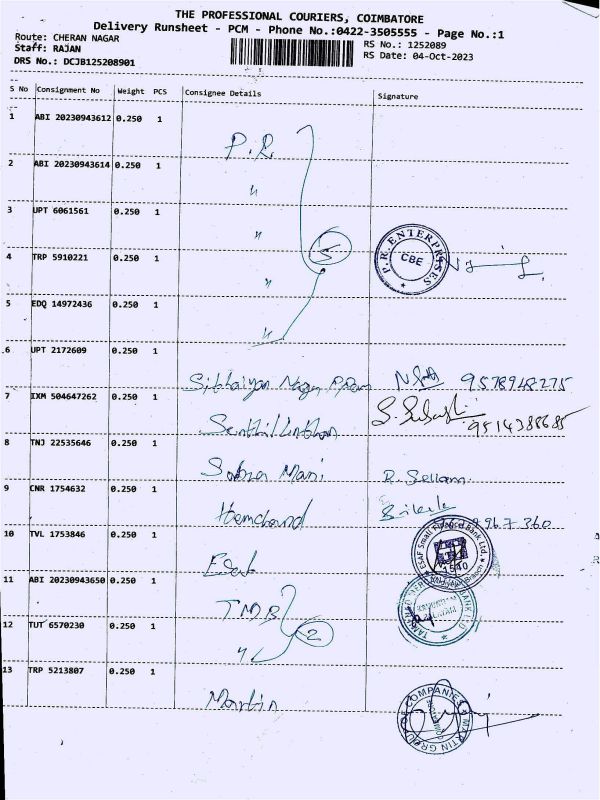 THE PROFESSIONAL COURIERS, COIMBATORE
Delivery Runsheet - PCM - Phone No.:0422-3505555 - Page No.:1
Route: CHERAN NAGAR
RS No.: 1252089
Staff: RAJAN
RS Date: 04-Oct-2023
DRS No.: DCJB125208901
S No Consignment No Weight PCS Consignee Details Signature
1 ABI 20230943612 0.250 1 P.R.
2 ABI 20230943614 0.250 1 "
3 UPT 6061561 0.250 1 "
4 TRP 5910221 0.250 1 " 5 P.R. ENTERPRISES CBE
5 EDQ 14972436 0.250 1 "
6 UPT 2172609 0.250 1 9578948275
7 IXM 504647262 0.250 1
8 TNJ 22535646 0.250 1 Mani
9 CNR 1754632 0.250 1 Hemchand
10 TVL 1753846 0.250 1 ESAF Small Finance Bank Ltd.
11 ABI 20230943650 0.250 1 TMB
12 TUT 6570230 0.250 1 " 2
13 TRP 5213807 0.250 1 Martin MARTIN GROUP OF COMPANIES